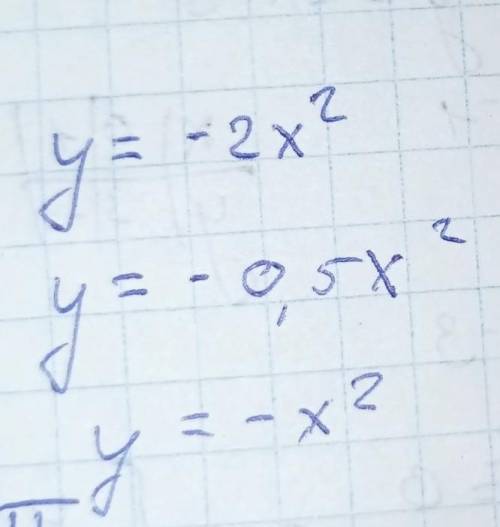 y = -2x²
y = -0,5x²
y = -x²